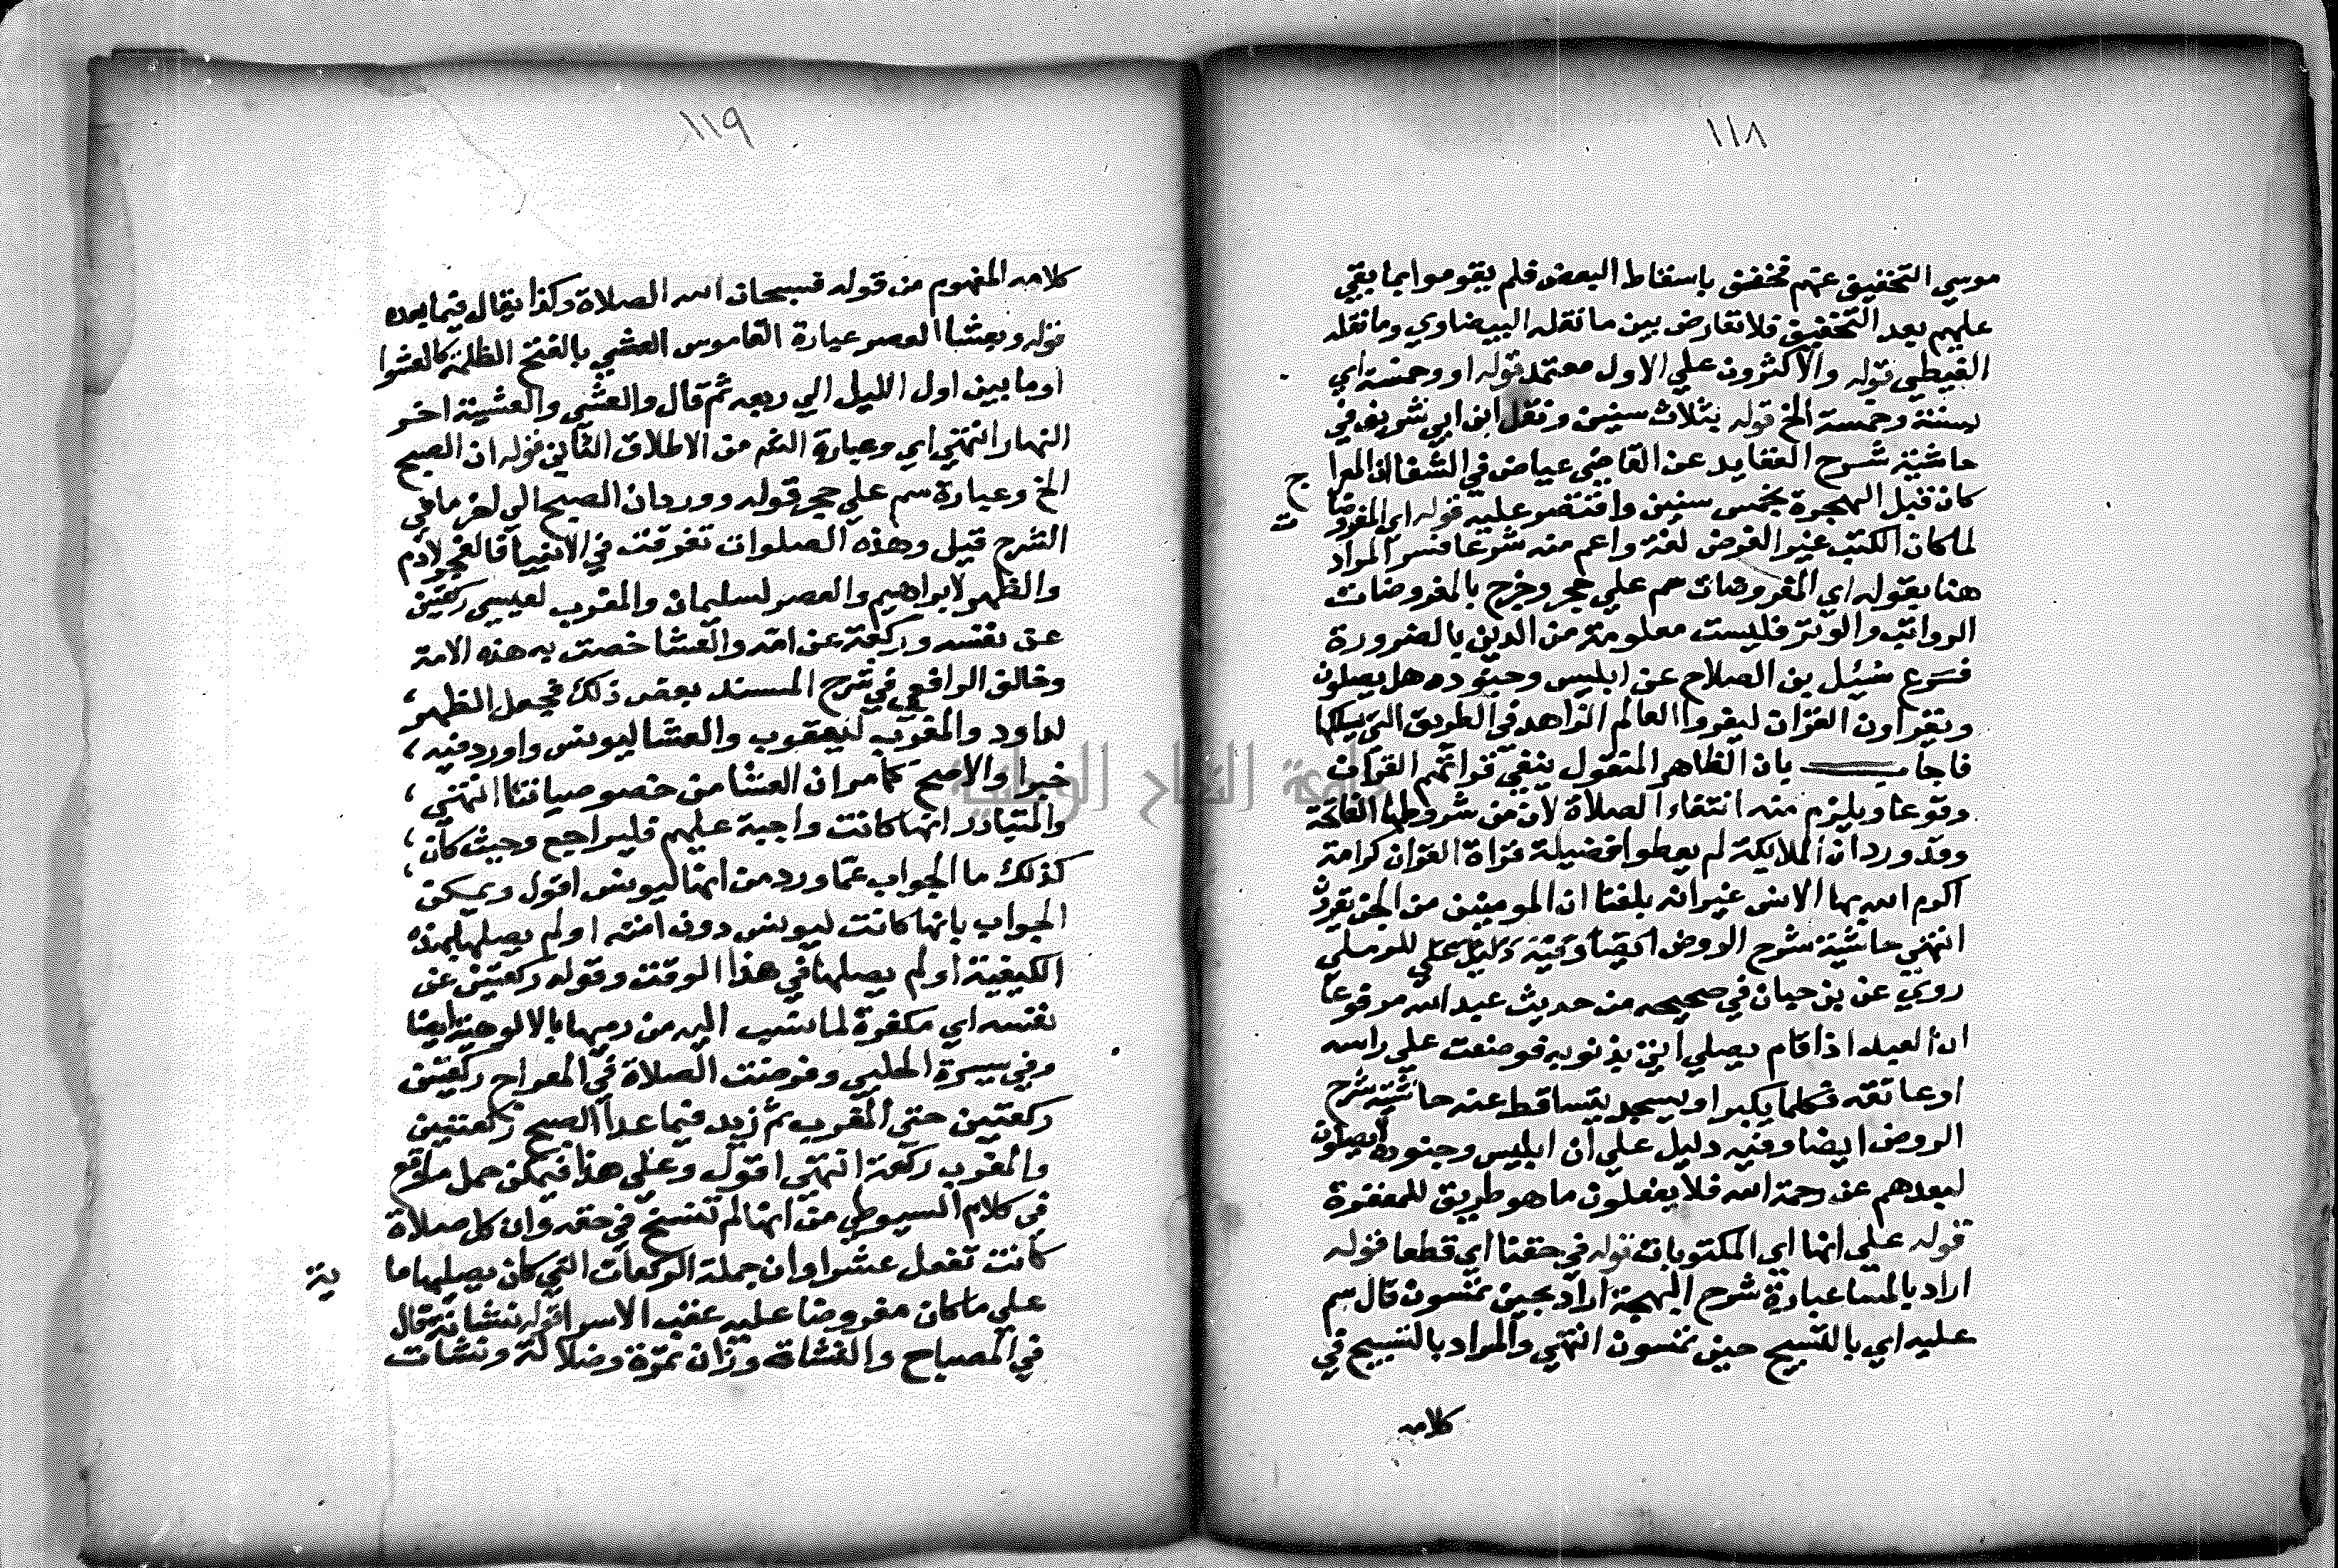 ١١٨
موسي التخفيق عنهم فخفق باسقاط البعض فلم يقوموا بما بقي
عليهم بعد التخفيق فلا تعارض بين ما نقله البيضاوي وما نقله
الغيطي قوله والاكثرون علي الاول معتمد قوله او وخمسة اي
بسنة وخمسة الخ قوله بثلاث سنين ونقل ابن ابي شريف في
حاشية شرح العقايد عن القاضي عياض في الشفا ان المعرا
ج
كان قبل الهجرة بخمس سنين واقتصر عليه قوله اي المفروضا
ت
لما كان الكتب غير الفرض لغة واعم منه شرعا فسر المراد
هنا بقوله اي المفروضات سم علي حجر وخرج بالمفروضات
الرواتب والوتر فليست معلومة من الدين بالضرورة
فرع سئل بن الصلاح عن ابليس وجنوده هل يصلون
ويقراون القران ليغروا العالم الزاهد في الطريق التي يسلكها
فاجاب بان الظاهر المنقول ينفي قراتهم القران
وقوعا ويلزم منه انتفاء الصلاة لان من شروطها الفاتحة
وقد ورد ان الملايكة لم يعطوا فضيلة قراة القران كرامة
اكرم الله بها الانس غير انه بلغنا ان المومنين من الجن تقرؤه
انتهي حاشية شرح الروض ايضا وفيه دليل علي للرملي
روي عن بن حيان في صحيحه من حديث عبد الله مرفوعا
ان العبد اذا قام يصلي اتي بذنوبه فوضعت علي راسه
او عاتقه فكلما يكبر او يسجد يتساقط عنه حاشية شرح
الروض ايضا وفيه دليل علي ان ابليس وجنوده لا يصلون
لبعدهم عن رحمة الله فلا يفعلون ما هو طريق للمغفرة
قوله علي انها اي المكتوبات قوله في حقنا اي قطعا قوله
اراد بالمسا عبارة شرح البهجة اراد بحين تمسون قال سم
عليه اي بالتسبيح حين تمسون انتهي والمراد بالتسبيح في
كلامه
١١٩
كلامه المفهوم من قوله فسبحان الله الصلاة وكذا يقال فيما بعده
قوله وبعشيا العصر عبارة القاموس العشي بالفتح الظلمة كالعشوا
او ما بين اول الليل الي ربعه ثم قال والعشي والعشية اخر
النهار انتهي اي وعبارة النم من الاطلاق الثاني قوله ان الصبح
الخ وعبارة سم علي حجر قوله وورد ان الصبح الي اخر ما في
الشرح قيل وهذه الصلوات تفرقت في الانبيا فالفجر لادم
والظهر لابراهيم والعصر لسليمان والمغرب لعيسي ركعتين
عن نفسه وركعة عن امه والعشا خصت به هذه الامة
وخالف الرافعي في شرح المسند بعض ذلك فجعل الظهر
لداود والمغرب ليعقوب والعشا ليونس واورد فيه
خبرا والاصح كما مر ان العشا من خصوصياتنا انتهي
والمتبادر انها كانت واجبة عليهم فليراجع وحيث كان
كذلك ما الجواب عما ورد من انها ليونس اقول ويمكن
الجواب بانها كانت ليونس دون امته او لم يصلها بهذه
الكيفية او لم يصلها في هذا الوقت وقوله ركعتين عن
نفسه اي مكفرة لما نسب اليه من رميها بالالوهية ايضا
وفي سيرة الحلبي وفرضت الصلاة في المعراج ركعتين
ركعتين حتي المغرب ثم زيد فيما عدا الصبح ركعتين
والمغرب ركعة انتهي اقول وعلي هذا فيمكن حمل ما وقع
في كلام السيوطي من انها لم تنسخ في حقه وان كل صلاة
كانت تفعل عشرا وان جملة الركعات التي كان يصليها ما
ية
علي ما كان مفروضا عليه عقب الاسرا قوله نشاته قال
في المصباح والنشاة وزان تمرة وضلالة ونشات